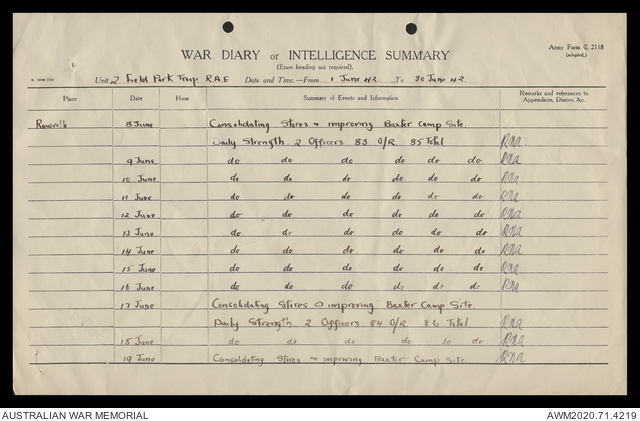 Army Form C. 2118
(adapted.)
WAR DIARY or INTELLIGENCE SUMMARY
(Erase heading not required).
Unit 2 Field Park Troop R.A.E Date and Time.—From 1 June 42. To 30 June 42.
Place Date Hour Summary of Events and Information Remarks and references to Appendices, Diaries, &c.
Rowville 8 June Consolidating Stores & improving Baxter Camp Site.
Daily Strength. 2 Officers 83 O/R. 85 Total RNA
9 June do do do do do do RNA
10 June do do do do do do RNA
11 June do do do do do do RNA
12 June do do do do do do RNA
13 June do do do do do do RNA
14 June do do do do do do RNA
15 June do do do do do do RNA
16 June do do do do do do RNA
17 June Consolidating Stores & improving Baxter Camp Site.
Daily Strength. 2 Officers. 84 O/R 86 Total RNA
18 June do do do do do do RNA
19 June Consolidating Stores & improving Baxter Camp Site RNA
AUSTRALIAN WAR MEMORIAL AWM2020.71.4219